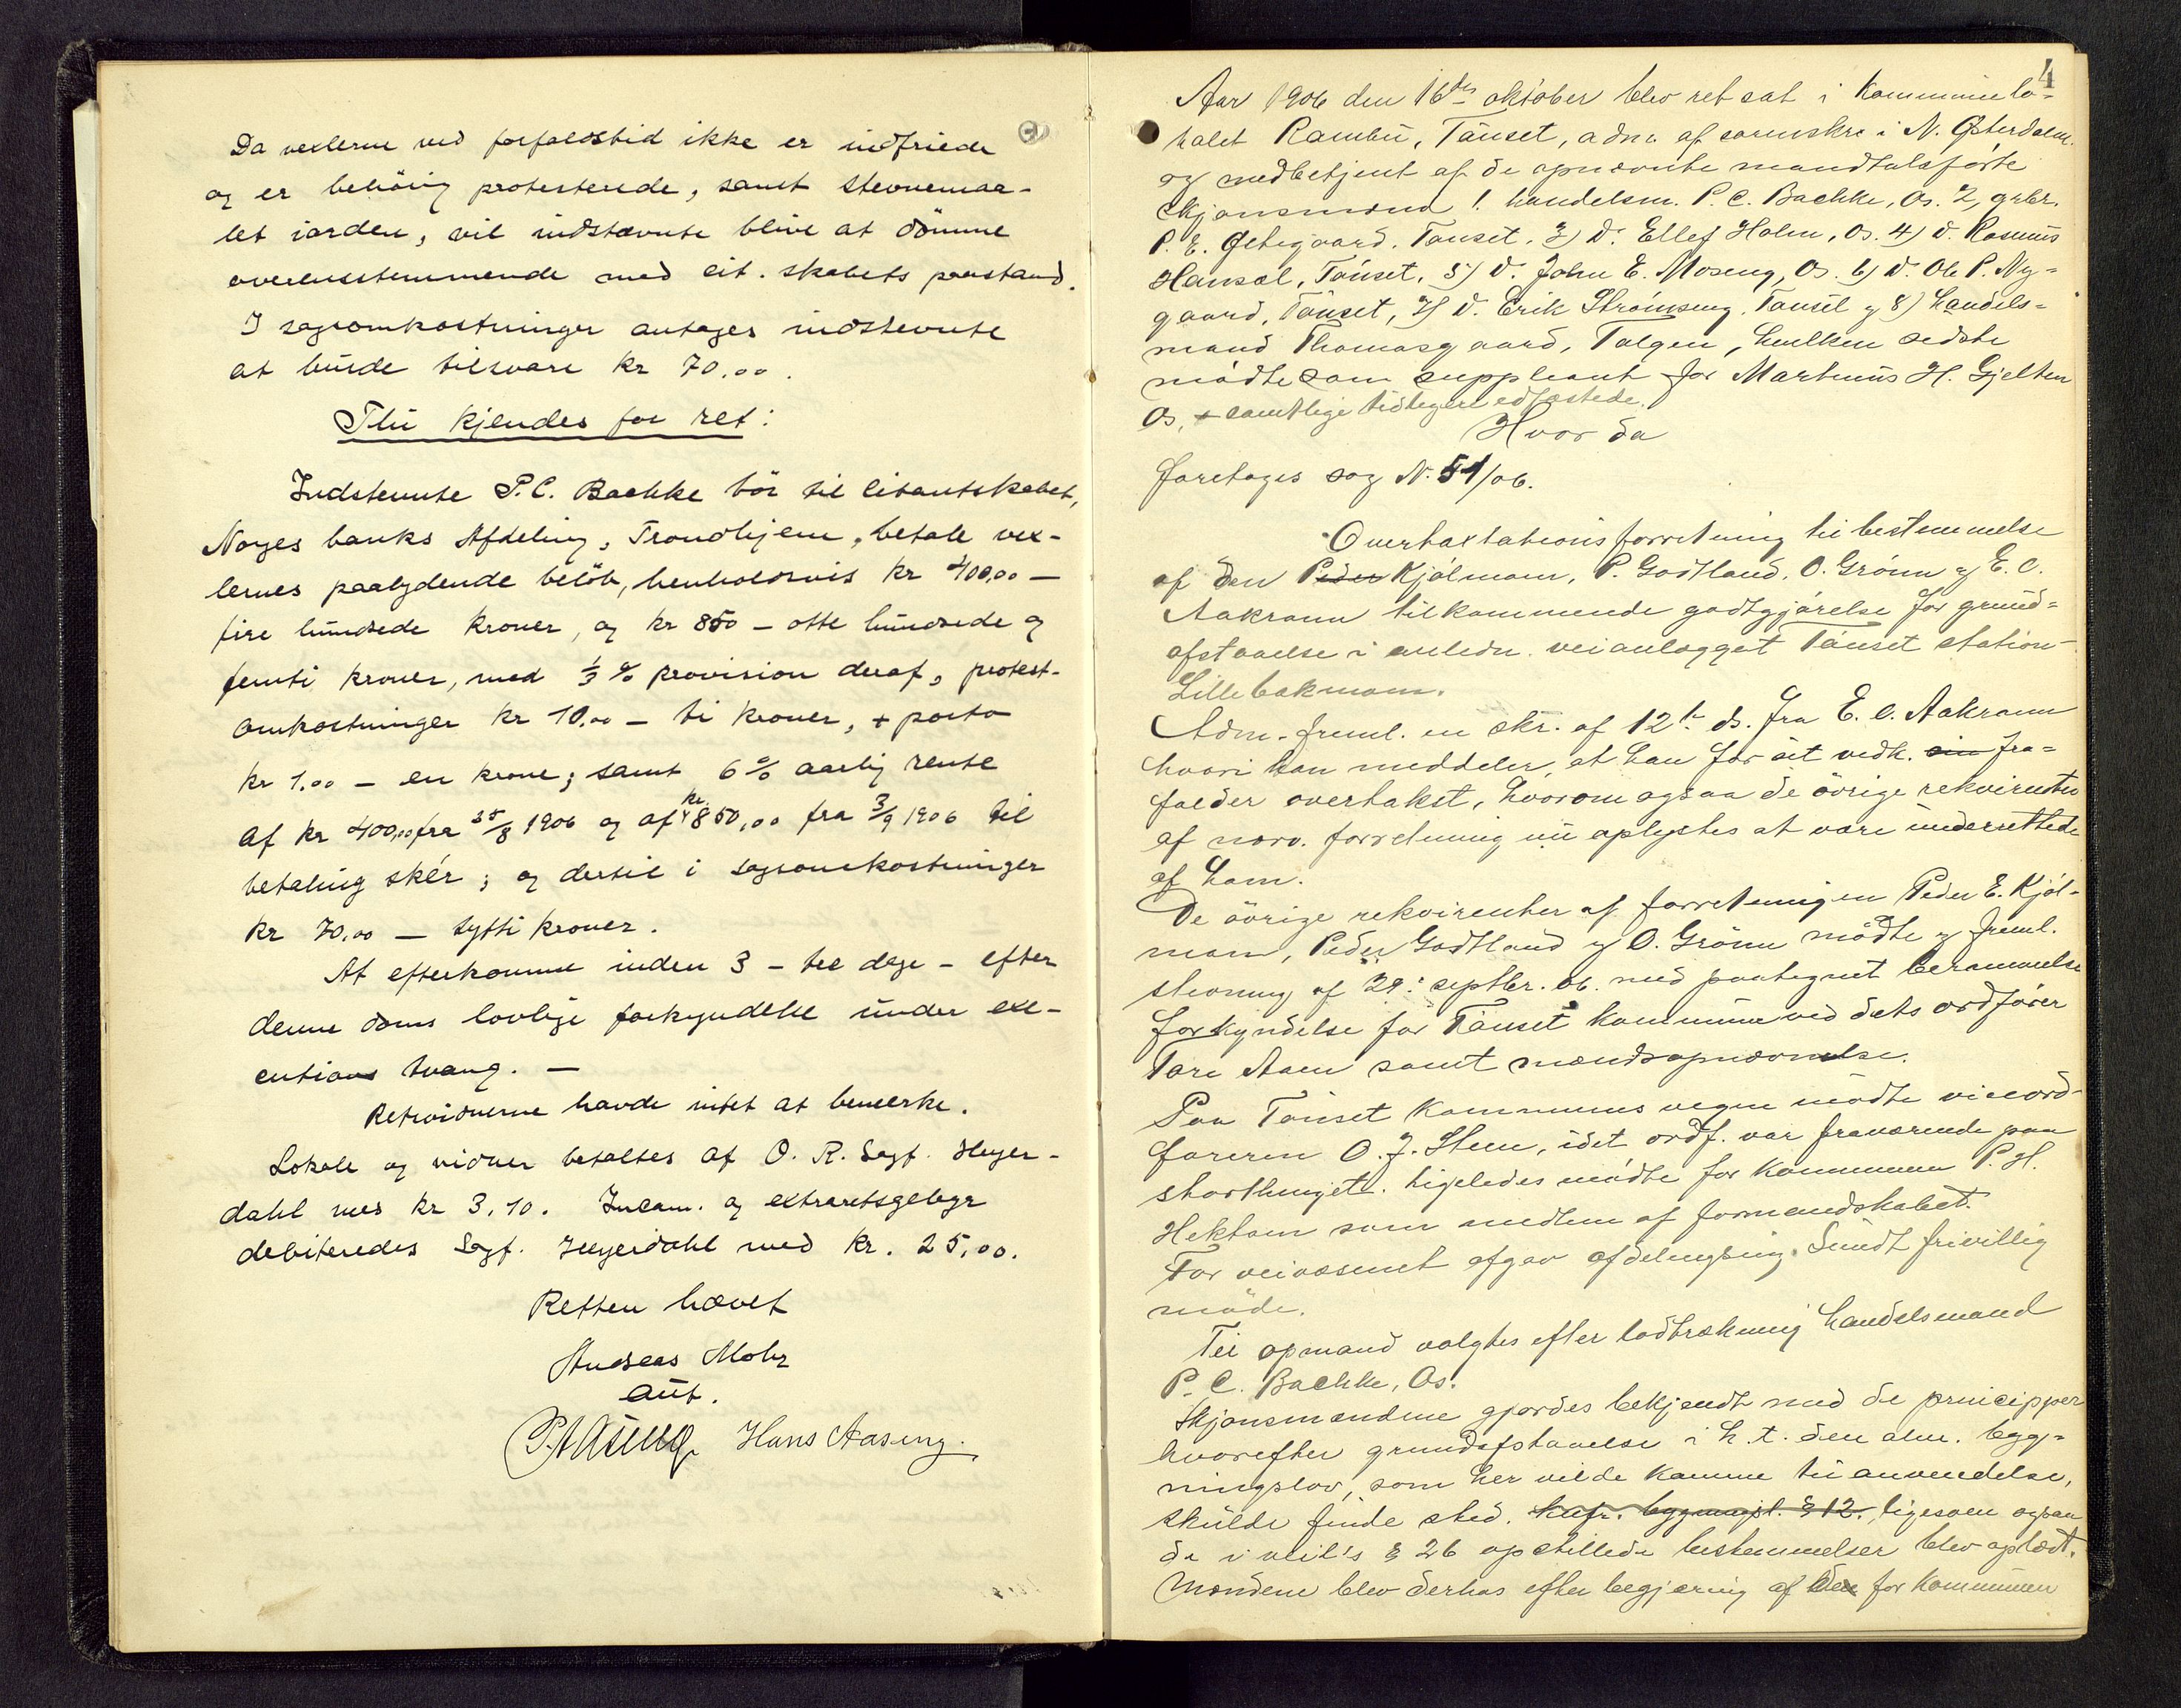 Da vexlerne ved forfaldstid ikke er indfriede
og er behörig protesterede, samt stevnemaa-
let iorden, vil indstævnte blive at dömme
overensstemmende med cit. skabets paastand.
I sagsomkostninger antages indstevnte
at burde tilsvare kr 70,00.
Thi kjendes for ret:
Indstevnte P. C. Bachke bör til citantskabet,
Norges banks Afdeling, Trondhjem, betale vex-
lernes paalydende belöb, henholdsvis kr 400,00 –
fire hundrede kroner, og kr 850 – otte hundrede og
femti kroner, med 1/3 % provision deraf, protest-
omkostninger kr 10,00 – ti kroner, + porto
kr 1,00 – en krone; samt 6 % aarlig rente
af kr 400,00 fra 25/8 1906 og af kr 850,00 fra 3/9 1906 til
betaling skér; og dertil i sagsomkostninger
kr 70,00 – sytti kroner.
At efterkomme inden 3 – tre dage – efter
denne doms lovlige forkyndelse under exe-
cutions tvang. –
Retsvidnerne havde intet at bemerke.
Lokale og vidner betaltes af O. R. Sagf. Heyer-
dahl med kr 3,10. Incam. og extraretsgebyr
debiteredes Sagf. Heyerdahl med kr. 25,00.
Retten hævet
Andreas Mohr
aut.
P. Aaseng Hans Aaseng.
4
Aar 1906 den 16de oktober blev ret sat i kommunelo-
kalet Rambu, Tönset, adm. af sorenskr. i N. Østerdalen
og medbetjent af de opnævnte mandtalsførte
skjønsmænd 1. handelsm. P. C. Bachke, Os. 2, grbr.
P. E. Østegaard, Tönset, 3) do. Ellef Holm, Os. 4) do. Rasmus
Hansæl, Tönset, 5) do. John E. Moseng, Os. 6) do. Ole P. Ny-
gaard, Tönset, 7) do. Erik Strömseng, Tönset og 8) handels-
mand Thomasgaard, Tolgen, hvilken sidste
mödte som suppleant for Martinus H. Gjelten
Os, + samtlige tidligere edfæstede.
Hvor da
foretoges sag N. 51/06.
Overtaxtationsforretning til bestemmelse
af den Peder Kjölmoen, P. Godtland, O. Grönn og E. C.
Aakrann tilkommende godtgjörelse for grund-
afstaaelse i anledn. veianlægget Tönset station-
Lillebakmoen.
Adm. freml. en skr. af 12te ds. fra E. C. Aakrann
hvori han meddeler, at han for sit vedk. sin fra-
falder overtakst, hvorom ogsaa de övrige rekvirenter
af nærv. forretning nu oplystes at være underrettede
af ham.
De övrige rekvirenter af forretningen Peder E. Kjöl-
moen, Peder Godtland og O. Grönn mödte og freml.
stevning af 29: septbr. 06. med paategnet berammelse
forkyndelse for Tönset kommune ved dets ordförer
Tore Aaen samt mændsopnævnelse.
Paa Tönset kommunes vegne mödte viceord-
föreren O. J. Steen, idet ordf. var fraværende paa
storthinget. Ligeledes mödte for kommunen P. H.
Hektoen som medlem af formandskabet.
For veivæsenet afgav afdelingsing. Sundt frivillig
möde.
Til opmand valgtes efter lodtrækning handelsmand
P. C. Bachke, Os.
Skjönsmændene gjordes bekjendt med de principper
hvorefter grundafstaaelse i h. t. den alm. byg-
ningslov, som her vilde komme til anvendelse,
skulde finde sted. konf. bygningsl. § 12. ligesom ogsaa
de i veil's § 26 opstillede bestemmelser blev oplæst.
Mændene blev derhos efter begjæring af den for kommunen